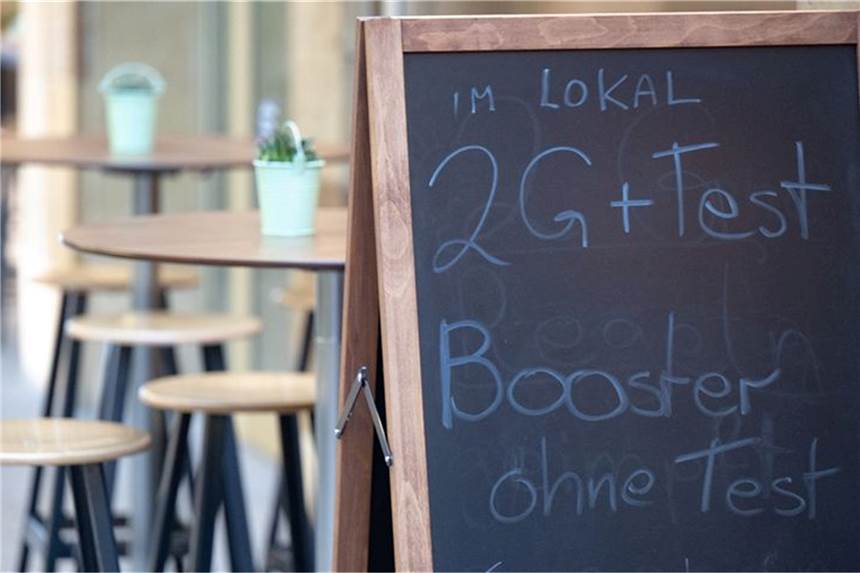 IM LOKAL
2G + Test
Booster
ohne Test